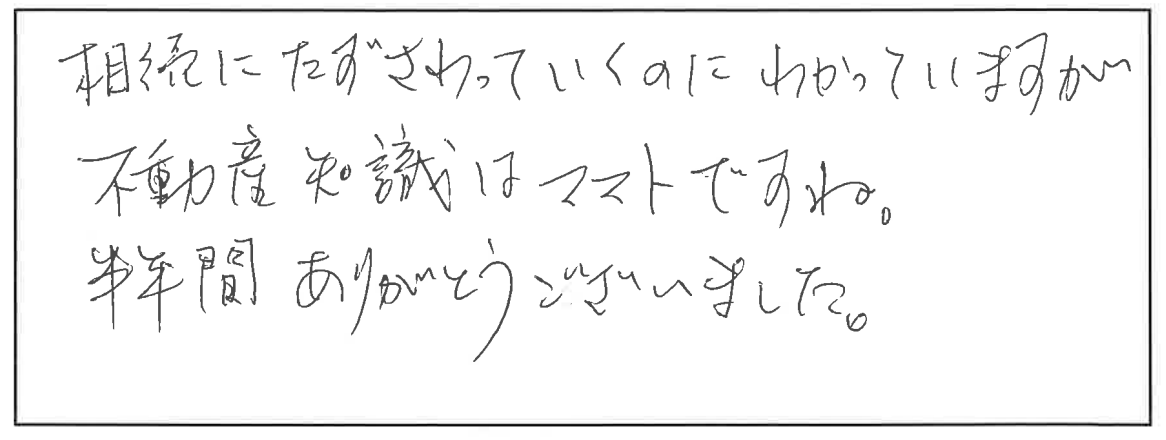 相続にたずさわっていくのにわかっていますが
不動産知識はマストですね。
半年間ありがとうございました。